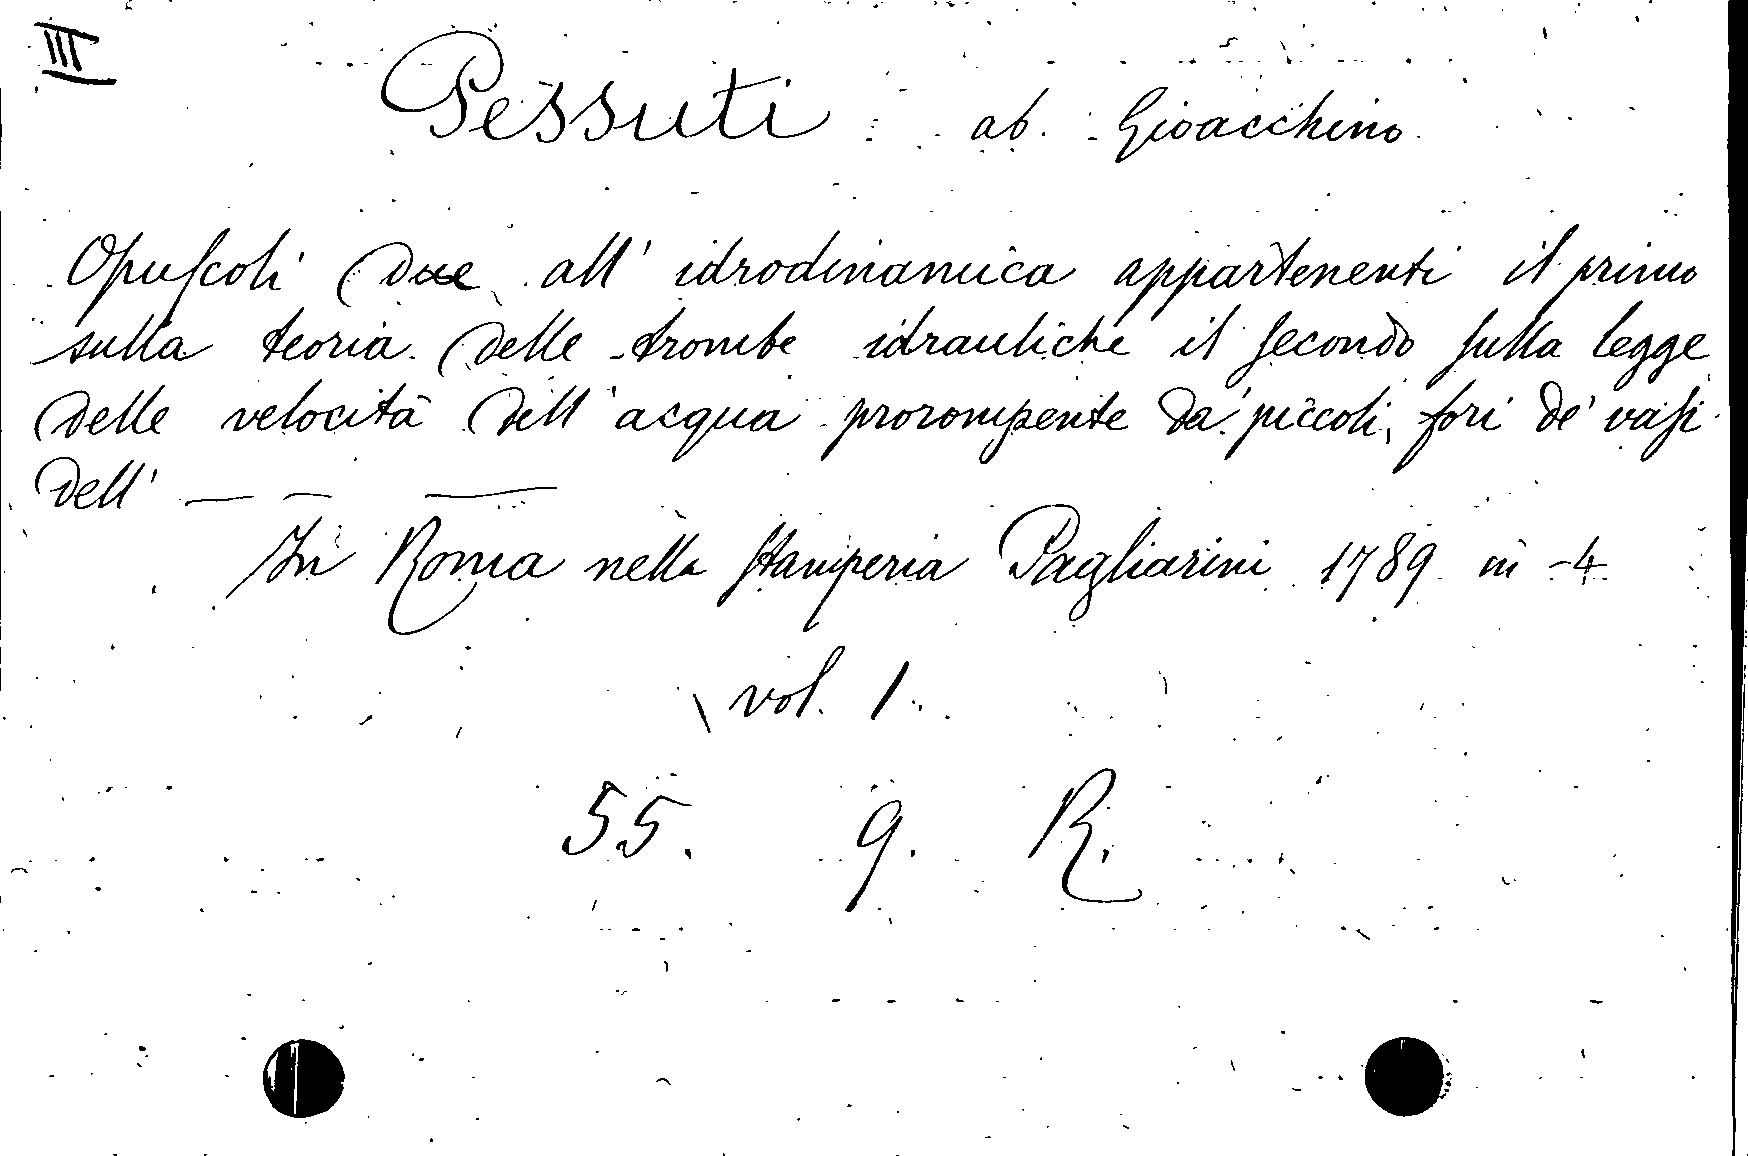 III
Pessuti ab. Gioacchino
Opuscoli due all' idrodinamica appartenenti il primo
sulla teoria delle trombe idrauliche il secondo sulla legge
delle velocità dell'acqua prorompente da' piccoli fori de' vasi
dell' — — —
In Roma nella stamperia Pagliarini 1789 in-4
vol. 1.
55. 9. R.